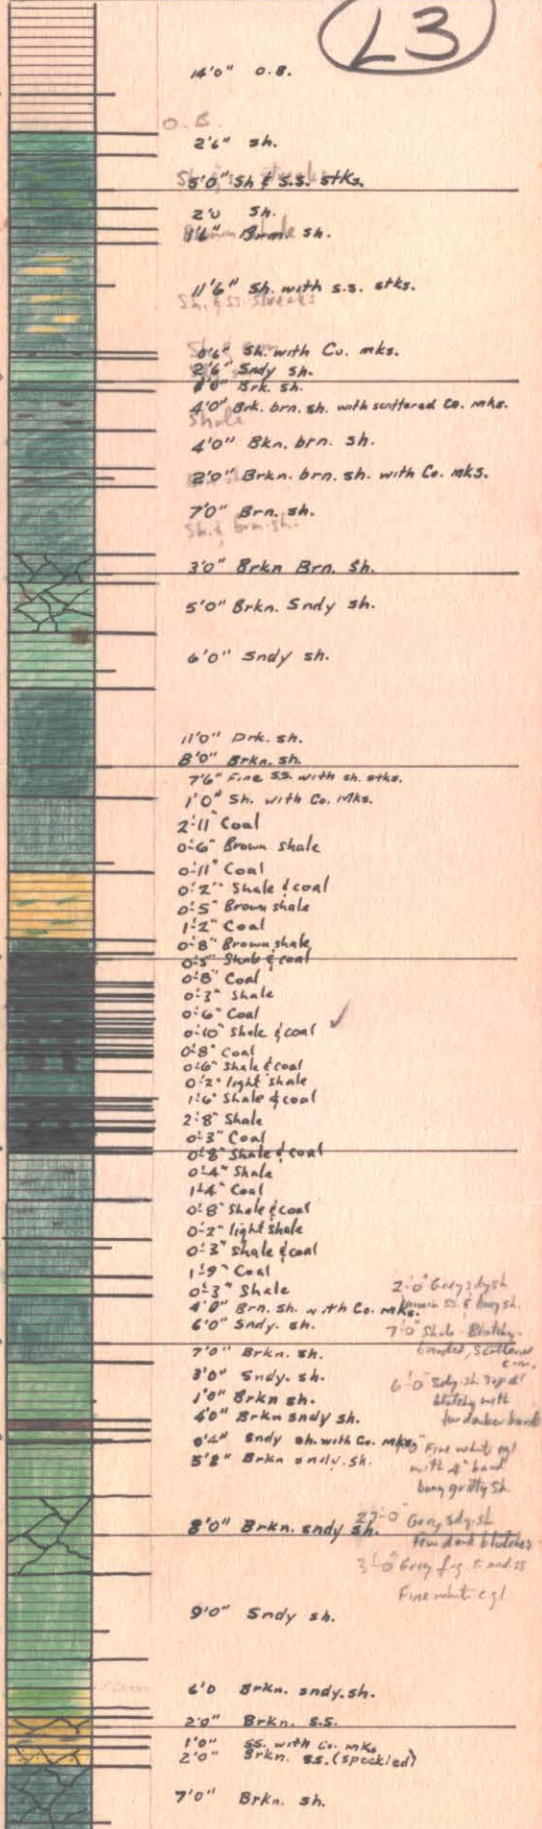 L3
14'0" O.B.
O.B.
2'6" sh.
5'0" Sh & S.S. stks.
2'0 Sh.
1'6" Brn. sh.
11'6" Sh. with s.s. stks.
Sh. & SS. Streaks
0'6" Sh. with Co. mks.
2'6" Sndy sh.
Brk. sh.
4'0" Brk. brn. sh. with scattered Co. mks.
Shale
4'0" Bkn. brn. sh.
2'0" Brkn. brn. sh. with Co. mks.
7'0" Brn. sh.
Sh. & brn. sh.
3'0" Brkn Brn. Sh.
5'0" Brkn. Sndy sh.
6'0" Sndy sh.
11'0" Drk. sh.
8'0" Brkn. sh.
7'6" Fine SS. with sh. stks.
1'0" Sh. with Co. Mks.
2'-11" Coal
0'-6" Brown shale
0'-11" Coal
0'-2" Shale & coal
0'-5" Brown shale
1'-2" Coal
0'-8" Brown shale
0'-5" Shale & coal
0'-8" Coal
0'-3" Shale
0'-6" Coal
0'-10" Shale & coal ✓
0'-8" Coal
0'-6" Shale & coal
0'-2" light shale
1'-6" Shale & coal
2'-8" Shale
0'-3" Coal
0'-8" Shale & coal
0'-4" Shale
1'-4" Coal
0'-8" Shale & coal
0'-2" light shale
0'-3" Shale & coal
1'-9" Coal
0'-3" Shale
4'0" Brn. sh. with Co. mks.
6'0" Sndy. sh.
7'0" Brkn. sh.
3'0" Sndy. sh.
1'0" Brkn sh.
4'0" Brkn sndy sh.
0'4" Sndy sh. with Co. mks.
5'8" Brkn sndy. sh.
8'0" Brkn. sndy sh.
9'0" Sndy sh.
6'0 Brkn. sndy. sh.
2'0" Brkn. S.S.
1'0" SS. with Co. mks
2'0" Brkn. SS. (speckled)
7'0" Brkn. sh.
2'-0" Grey sdy sh
SS & bony sh.
7'-0" Shale - Blotchy
banded, scattered
6'-0" Sdy. sh
blotchy with
few darker bands
Fine white cgl
with 4" band
bony gritty sh
Grey sdy. sh
few dark blotches
Grey f.g.
Fine white cgl